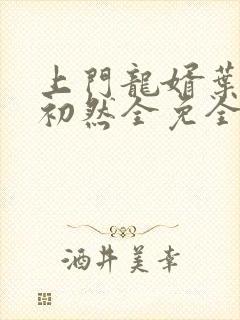 上門龍婿葉
初然全免全
酒井美幸